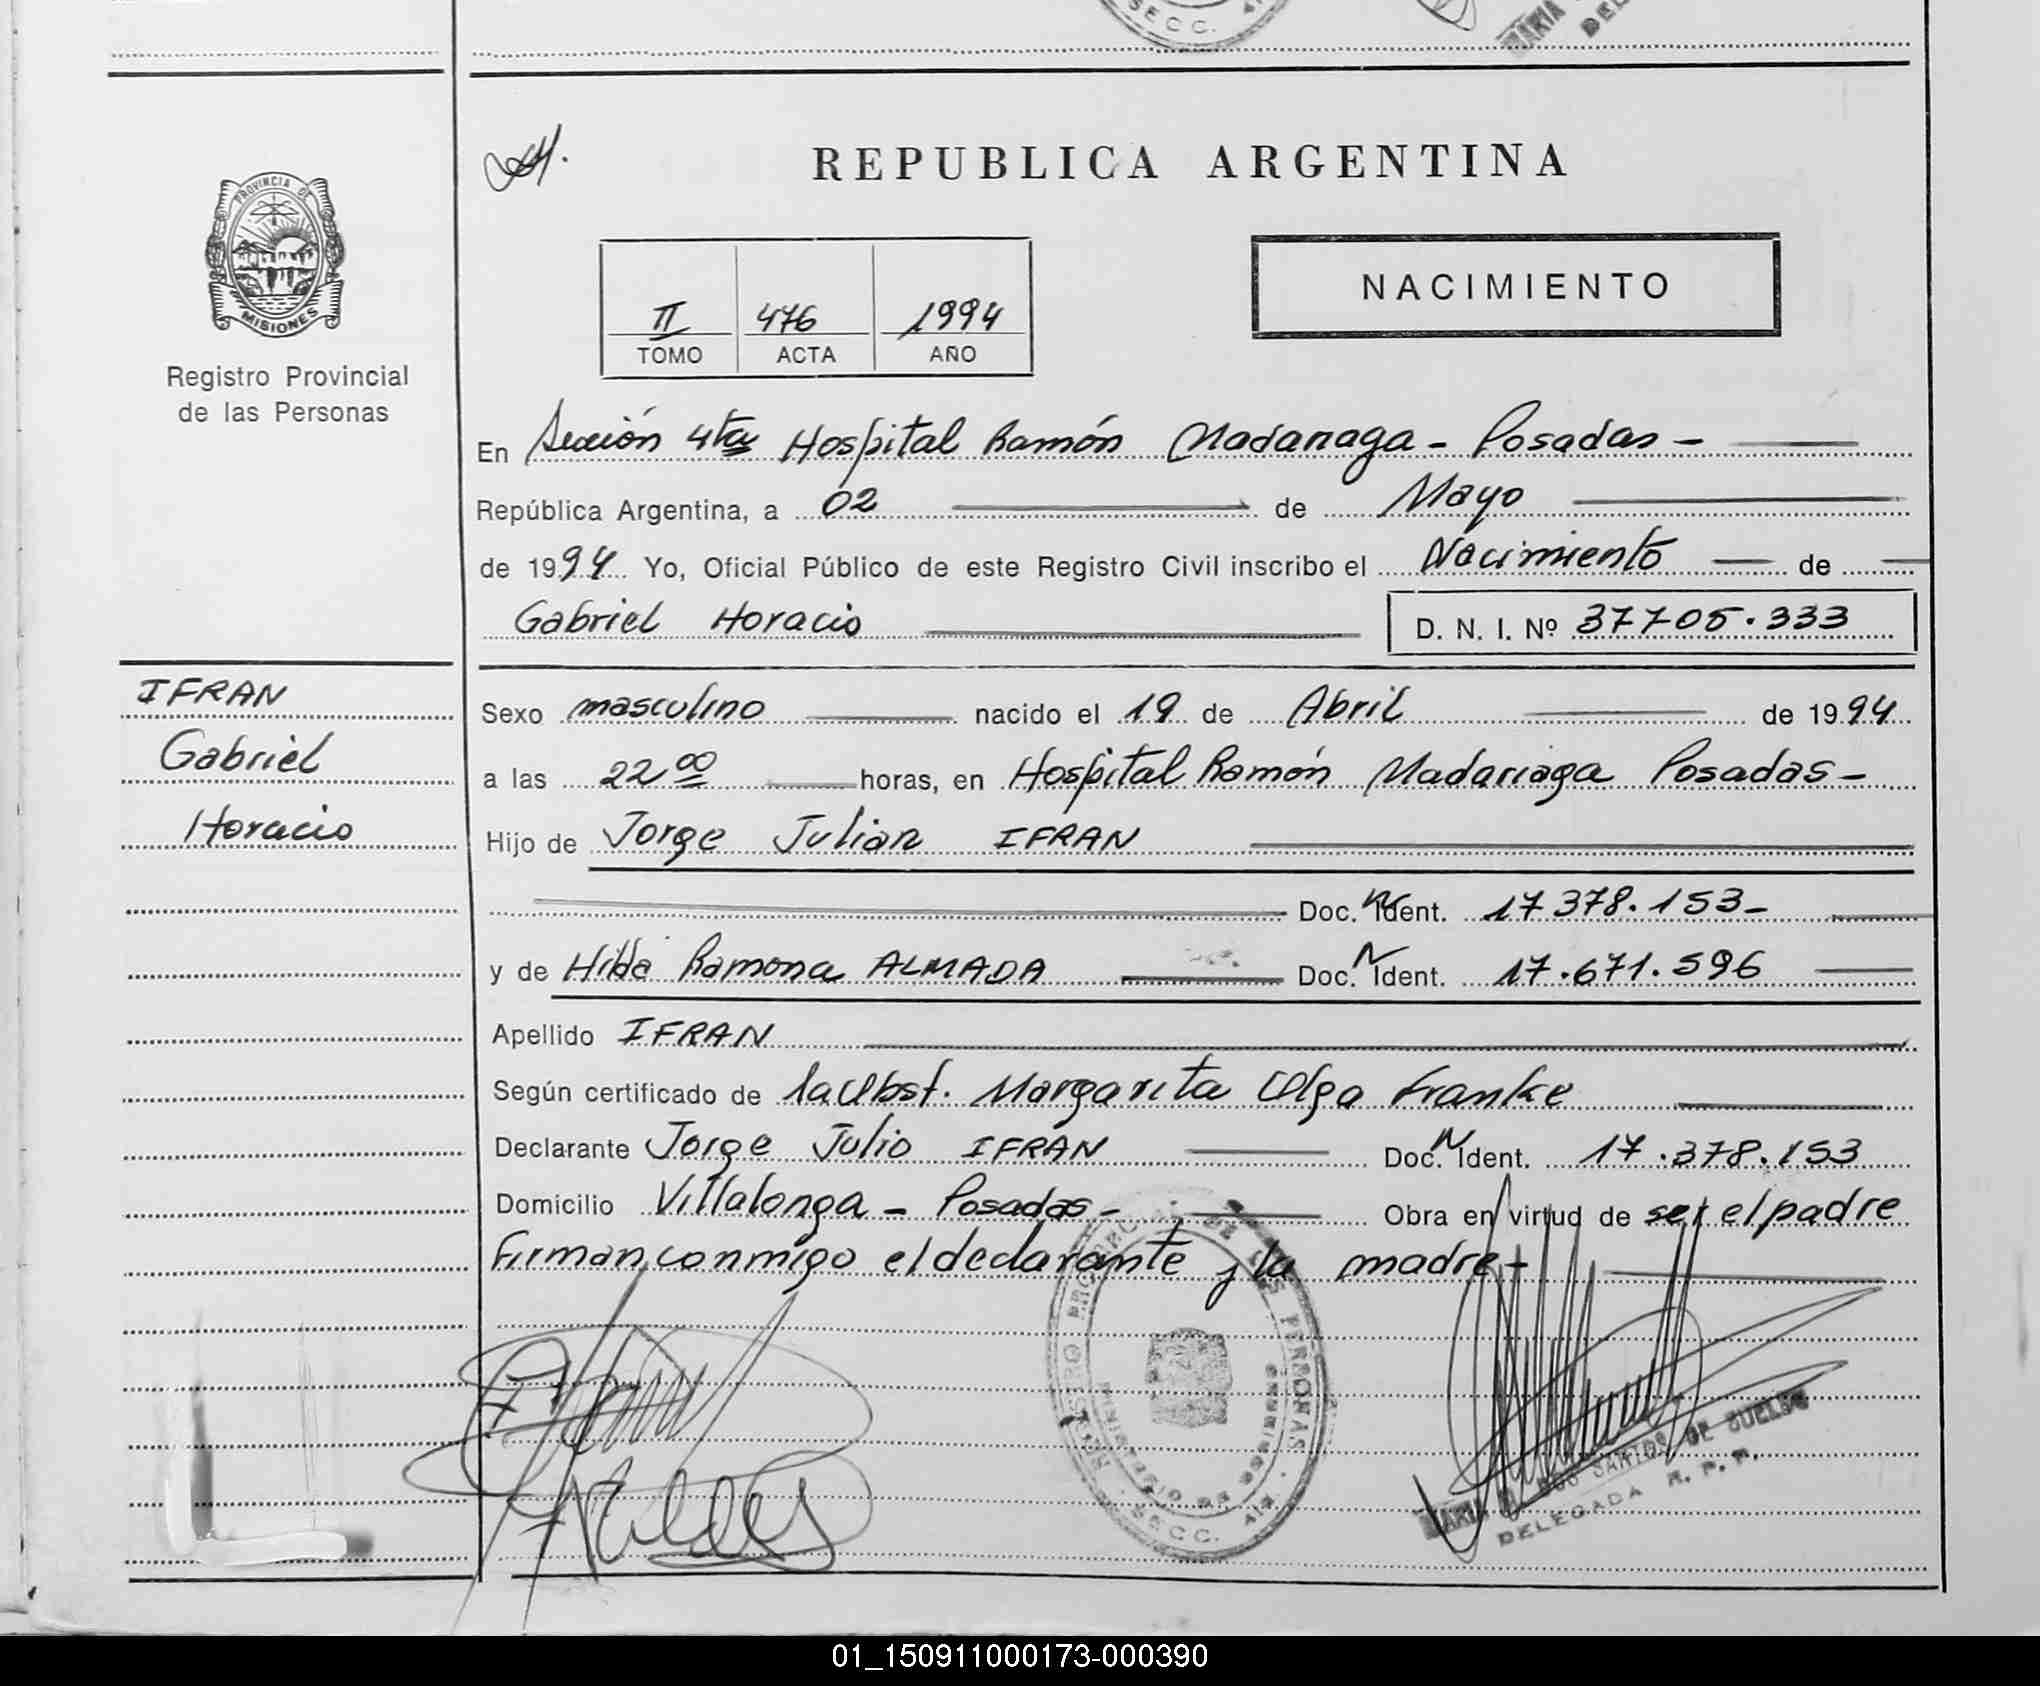 SECC. 4
MARIA
DEL
REPUBLICA ARGENTINA
NACIMIENTO
II 476 1994
TOMO ACTA AÑO
PROVINCIA DE
MISIONES
Registro Provincial
de las Personas
En Sección 4ta Hospital Ramón Madariaga - Posadas -
República Argentina, a 02 de Mayo
de 1994 Yo, Oficial Público de este Registro Civil inscribo el Nacimiento de
Gabriel Horacio D. N. I. Nº 37705.333
IFRAN
Gabriel
Horacio
Sexo masculino nacido el 19 de Abril de 1994
a las 22 00 horas, en Hospital Ramón Madariaga Posadas -
Hijo de Jorge Julian IFRAN
Doc. N Ident. 17 378.153 -
y de Hilda Ramona ALMADA Doc. N Ident. 17.671.596
Apellido IFRAN
Según certificado de la Obst. Margarita Olga Franke
Declarante Jorge Julio IFRAN Doc. N Ident. 17.378.153
Domicilio Villalonga - Posadas - Obra en virtud de ser el padre
Firman conmigo el declarante y la madre -
REGISTRO PROVINCIAL DE LAS PERSONAS
MINISTERIO DE GOBIERNO
SECC. 4ta.
MARIA DOS SANTOS DE SUELDO
DELEGADA R. P. P.
01_150911000173-000390